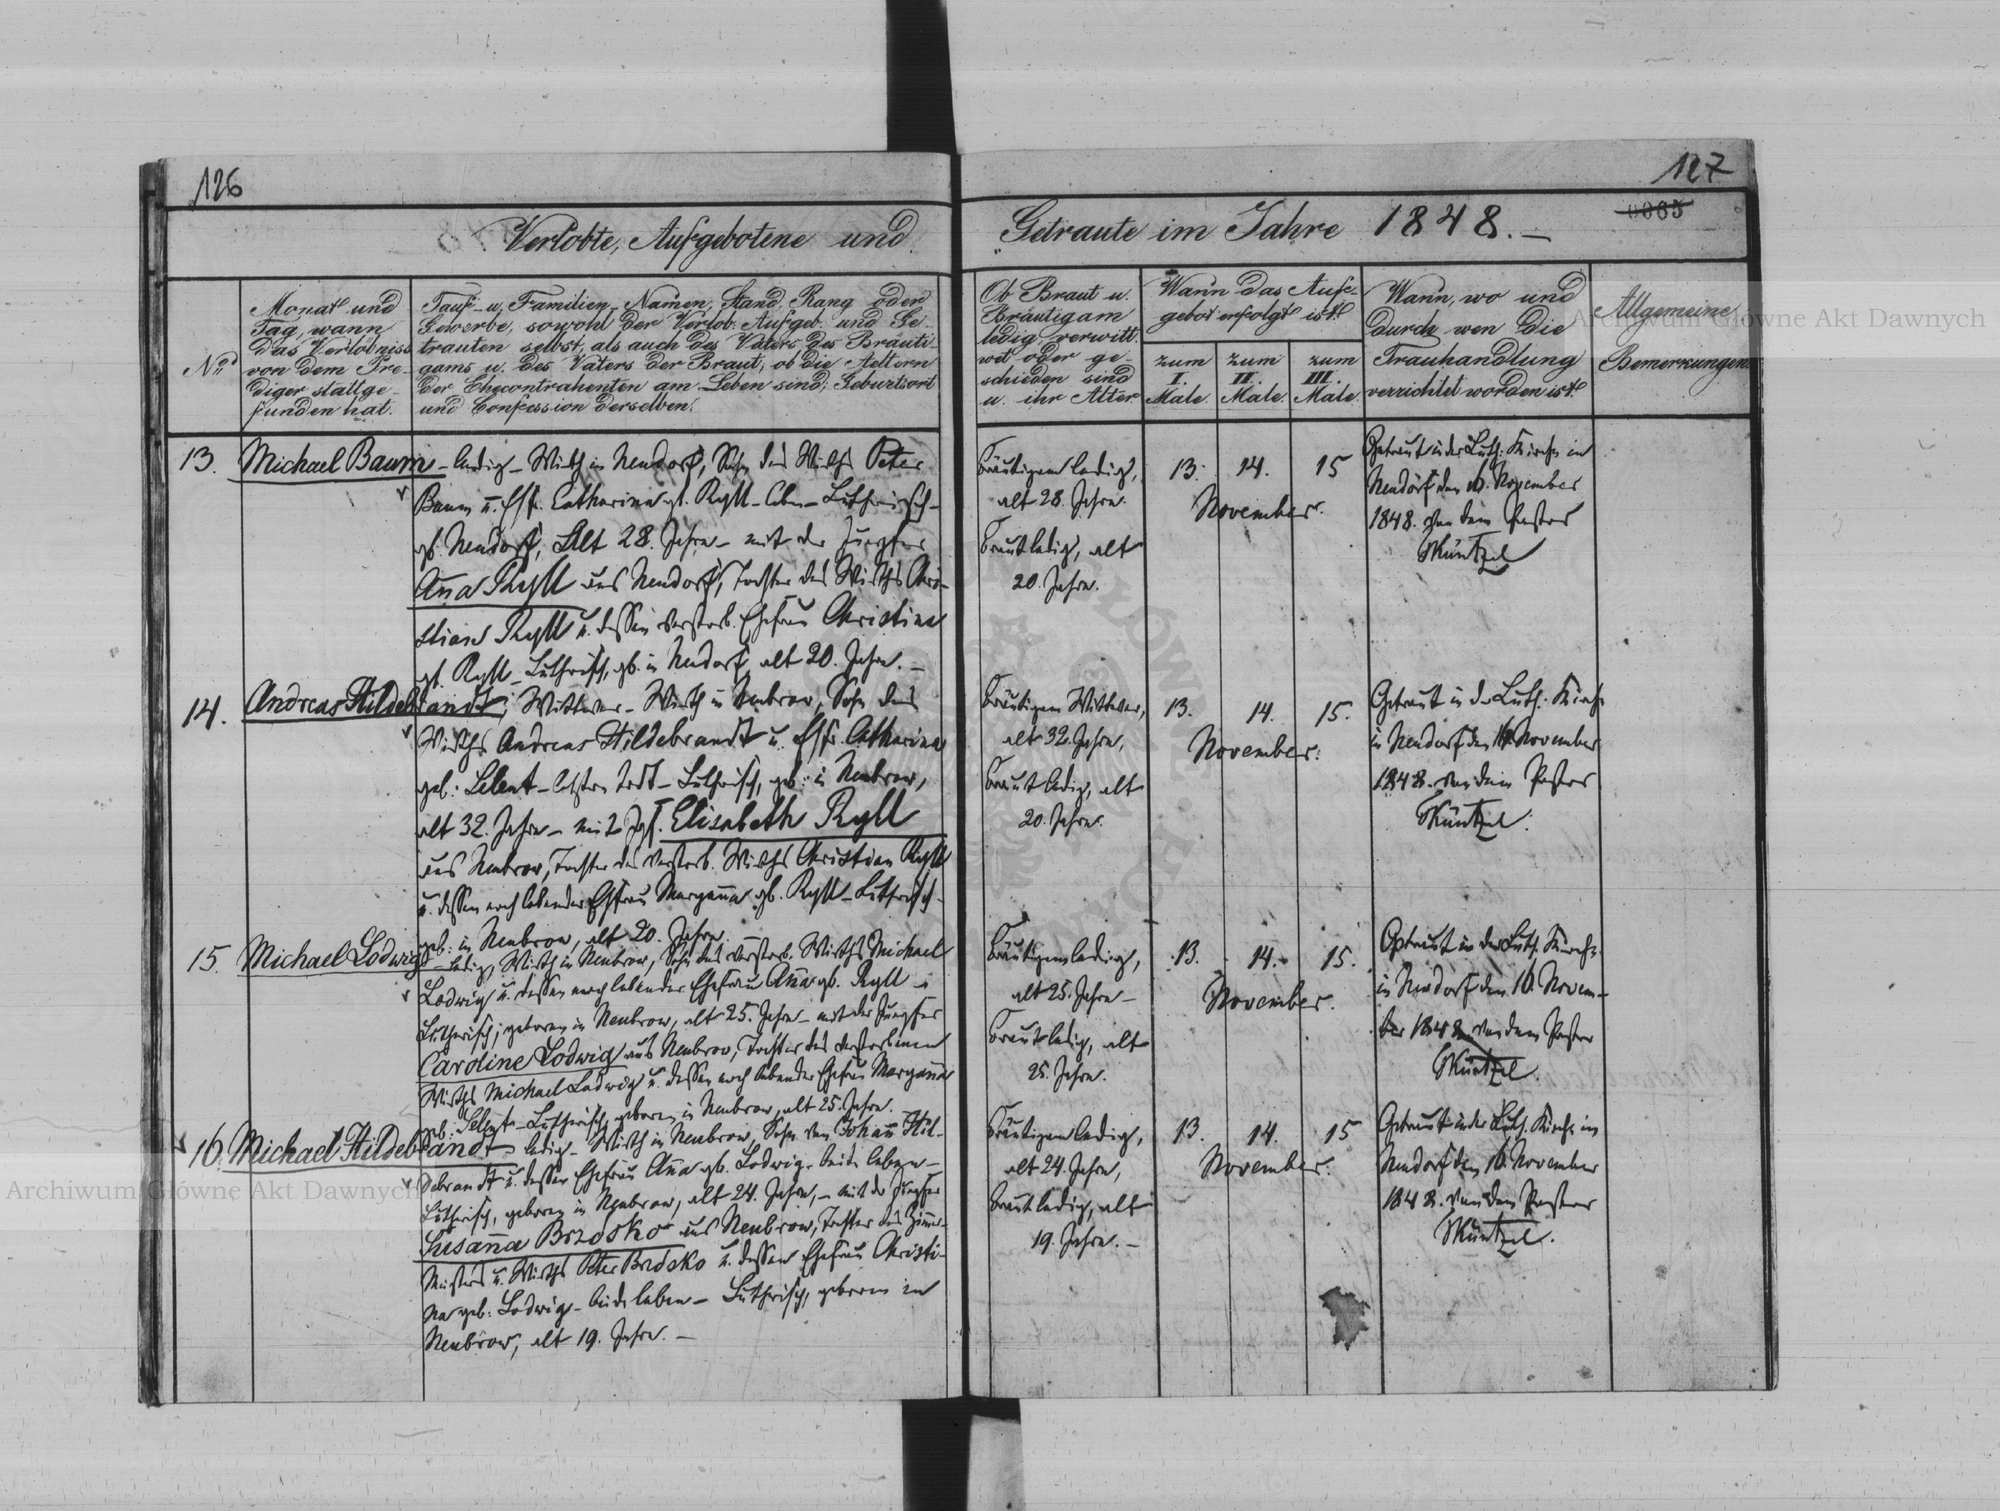 126
127
0065
Verlobte, Aufgebotene und
Getraute im Jahre 1848.–
No
Monat und
Tag, wann
das Verlöbniss
von dem Pre-
diger stattge-
funden hat.
Tauf- u. Familien-Namen, Stand, Rang oder
Gewerbe, sowohl der Verlob. Aufgeb. und Ge-
trauten selbst, als auch des Vaters des Bräuti-
gams u. des Vaters der Braut, ob die Aeltern
der Ehecontrahenten am Leben sind; Geburtsort
und Confession derselben.
Ob Braut u.
Bräutigam
ledig, verwitt-
wet oder ge-
schieden sind
u. ihr Alter
Wann das Auf-
gebot erfolgt ist.
zum I. Male
zum II. Male
zum III. Male
Wann, wo und
durch wen die
Trauhandlung
verrichtet worden ist.
Allgemeine
Bemerkungen.
13. Michael Baum – ledig – Wirth in Neudorf, Sohn des Wirths Peter
Baum u. Ehfr. Catharina gb. Ryll – leben – Lutherisch –
gb. Neudorf, Alt 28. Jahre – mit der Jungfer
Anna Ryll aus Neudorf, Tochter des Wirths Chri-
stian Ryll u. dessen verstorb. Ehefrau Christina
gb. Ryll – Lutherisch, gb. in Neudorf alt 20. Jahre. –
Bräutigam ledig,
alt 28. Jahre.
Braut ledig, alt
20. Jahre.
13. 14. 15
November.
Getraut in der Luth. Kirche in
Neudorf den November
1848. von dem Pastor
Müntzel
14. Andreas Hildebrandt, Wittwer – Wirth in Neubrow, Sohn des
Wirths Andreas Hildebrandt u. Ehfr. Catharina
geb. Selent – letztere todt – Lutherisch, geb. in Neubrow,
alt 32. Jahre – mit Jgf. Elisabeth Ryll
aus Neubrow, Tochter des verstorb. Wirths Christian Ryll
u. dessen noch lebender Ehfrau Maryanna gb. Ryll – Lutherisch –
geb. in Neubrow, alt 20. Jahre.
Bräutigam Wittwer,
alt 32. Jahre,
Braut ledig, alt
20. Jahre.
13. 14. 15.
November.
Getraut in der Luth. Kirche
in Neudorf den November
1848. von dem Pastor
Müntzel.
15. Michael Lodwig – ledig, Wirth in Neubrow, Sohn des verstorb. Wirths Michael
Lodwig u. dessen noch lebender Ehefrau Anna gb. Ryll –
Lutherisch, geboren in Neubrow, alt 25. Jahre – mit der Jungfer
Caroline Lodwig aus Neubrow, Tochter des verstorbenen
Wirths Michael Lodwig u. dessen noch lebender Ehefrau Maryanna
geb. Selent – Lutherisch, geboren in Neubrow, alt 25. Jahre.
Bräutigam ledig,
alt 25. Jahre –
Braut ledig, alt
25. Jahre.
13. 14. 15.
November.
Getraut in der Luth. Kirche
in Neudorf den 16. Novem-
ber 1848 von dem Pastor
Müntzel.
16. Michael Hildebrandt – ledig – Wirth in Neubrow, Sohn von Johann Hil-
debrandt u. dessen Ehefrau Anna gb. Lodwig – beide leben –
Lutherisch, geboren in Neubrow, alt 24. Jahre, – mit der Jungfer
Susanna Brzosko aus Neubrow, Tochter des Zimmer-
Meisters u. Wirths Peter Brzosko u. dessen Ehefrau Christi-
na geb. Lodwig – beide leben – Lutherisch, geboren in
Neubrow, alt 19. Jahre. –
Bräutigam ledig,
alt 24. Jahre,
Braut ledig, alt
19. Jahre. –
13. 14. 15
November.
Getraut in der Luth. Kirche in
Neudorf den 16. November
1848. von dem Pastor
Müntzel.
Archiwum Główne Akt Dawnych
Archiwum Główne Akt Dawnych